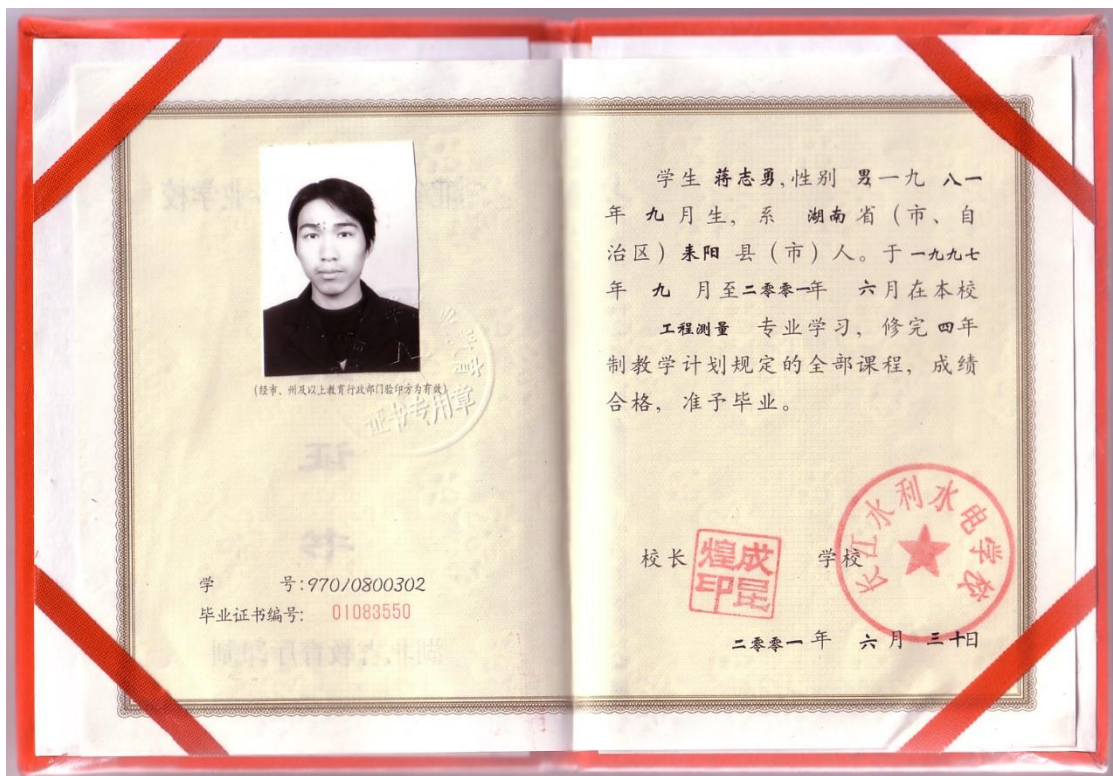 (经市、州及以上教育行政部门验印方为有效)
证书专用章
学 号:97010800302
毕业证书编号: 01083550
学生 蒋志勇,性别 男一九 八一
年 九 月生, 系 湖南省(市、自
治区)耒阳 县(市)人。于一九九七
年 九 月至二零零一年 六月在本校
工程测量 专业学习, 修完 四年
制教学计划规定的全部课程, 成绩
合格, 准予毕业。
长江水利水电学校
校长 成昆煌印 学校
二零零一 年 六 月 三十日